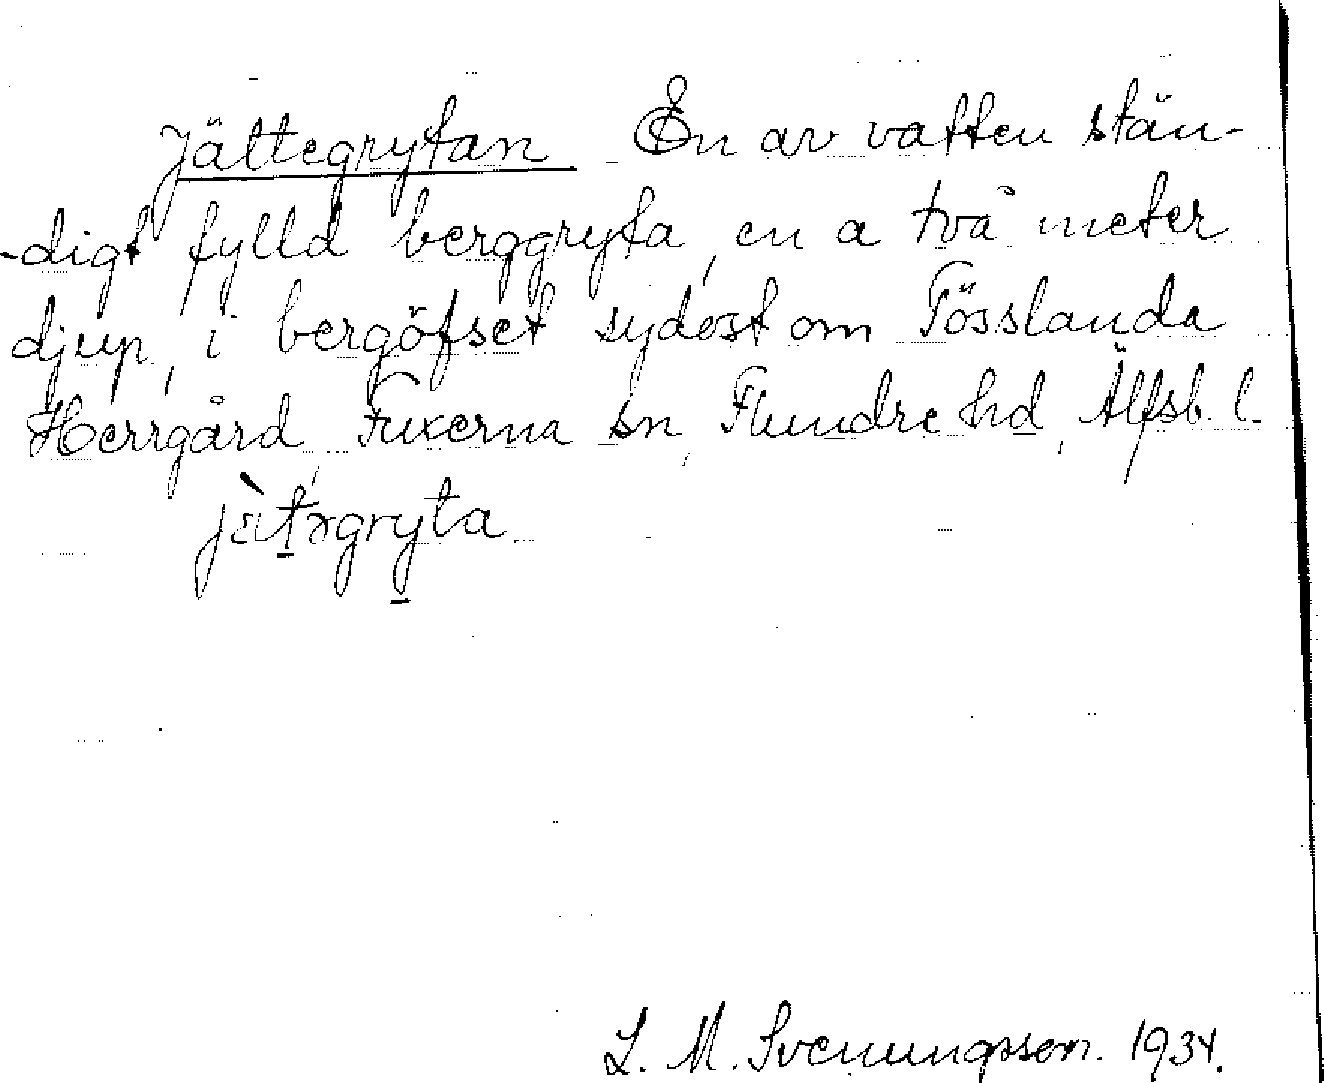 Jättegrytan En av vatten stän-
-digt fylld berggryta, en a två meter
djup, i bergöfset sydost om Fösslanda
Herrgård, Fuxerna sn, Flundre hd, Älfsb. l.
jɛ̀tərgryta
L. M. Svenungsson. 1934.